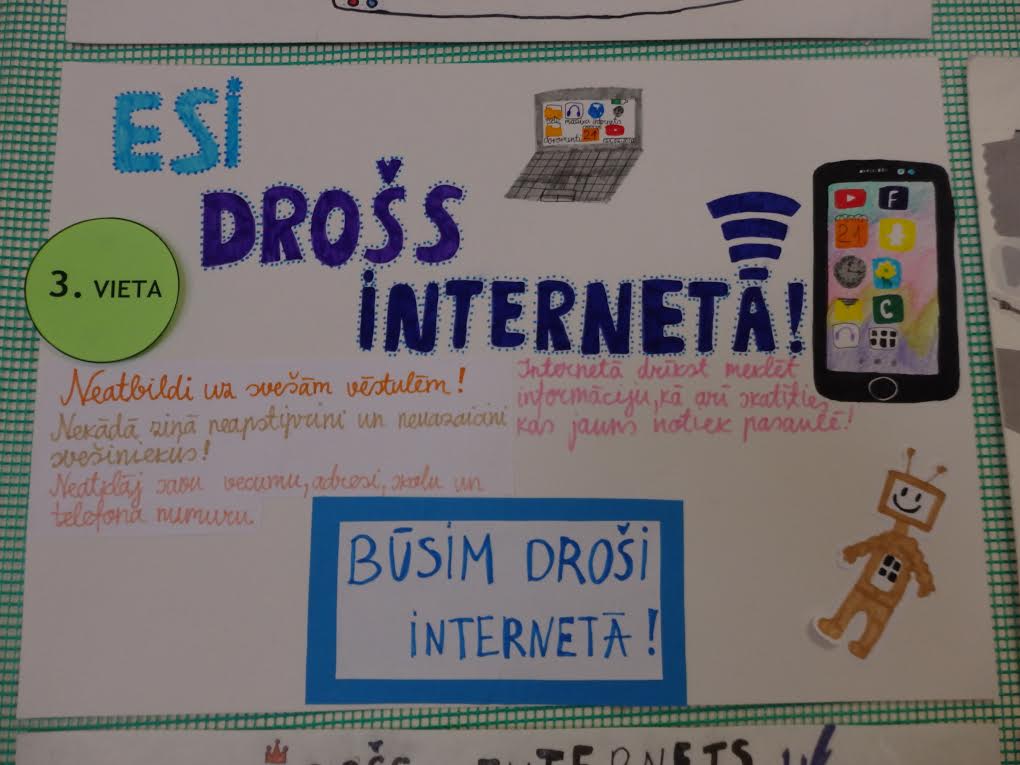 ESI
DROŠS
INTERNETĀ!
3. VIETA
21
F
21
C
Neatbildi uz svešām vēstulēm!
Nekādā ziņā neapstiprini un neuzaicini
svešiniekus!
Neatklāj savu vecumu, adresi, skolu un
telefona numuru.
Internetā drīkst meklēt
informāciju, kā arī skatīties
kas jauns notiek pasaulē!
BŪSIM DROŠI
INTERNETĀ!